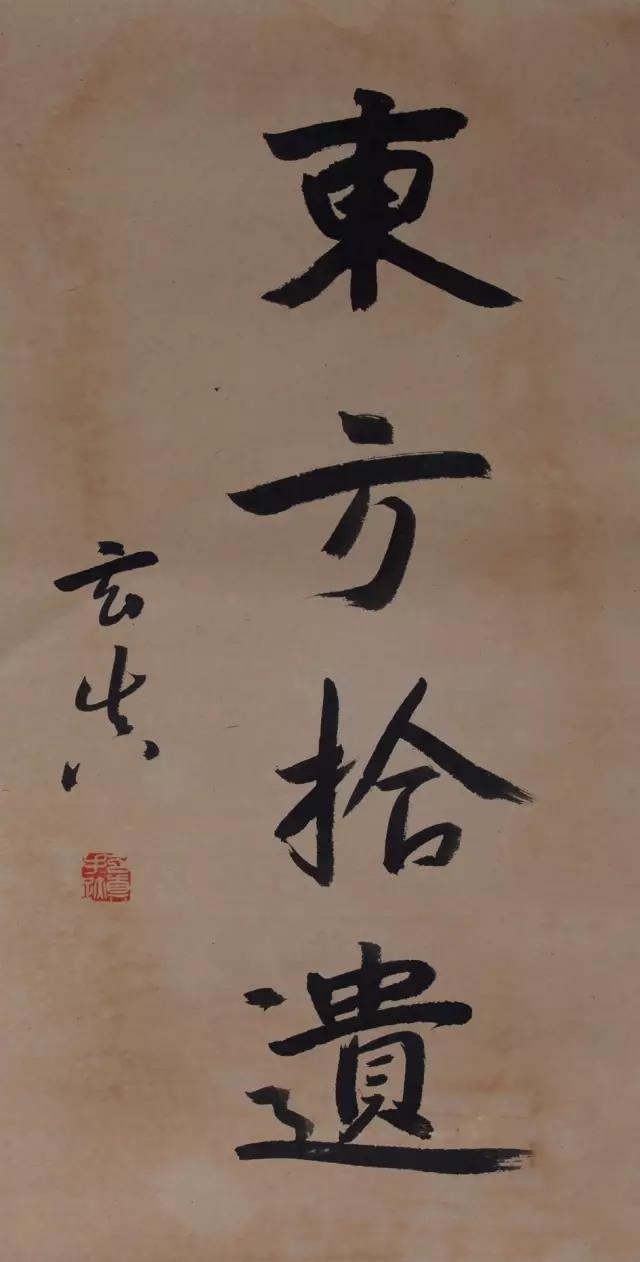 東方拾遺
玄真